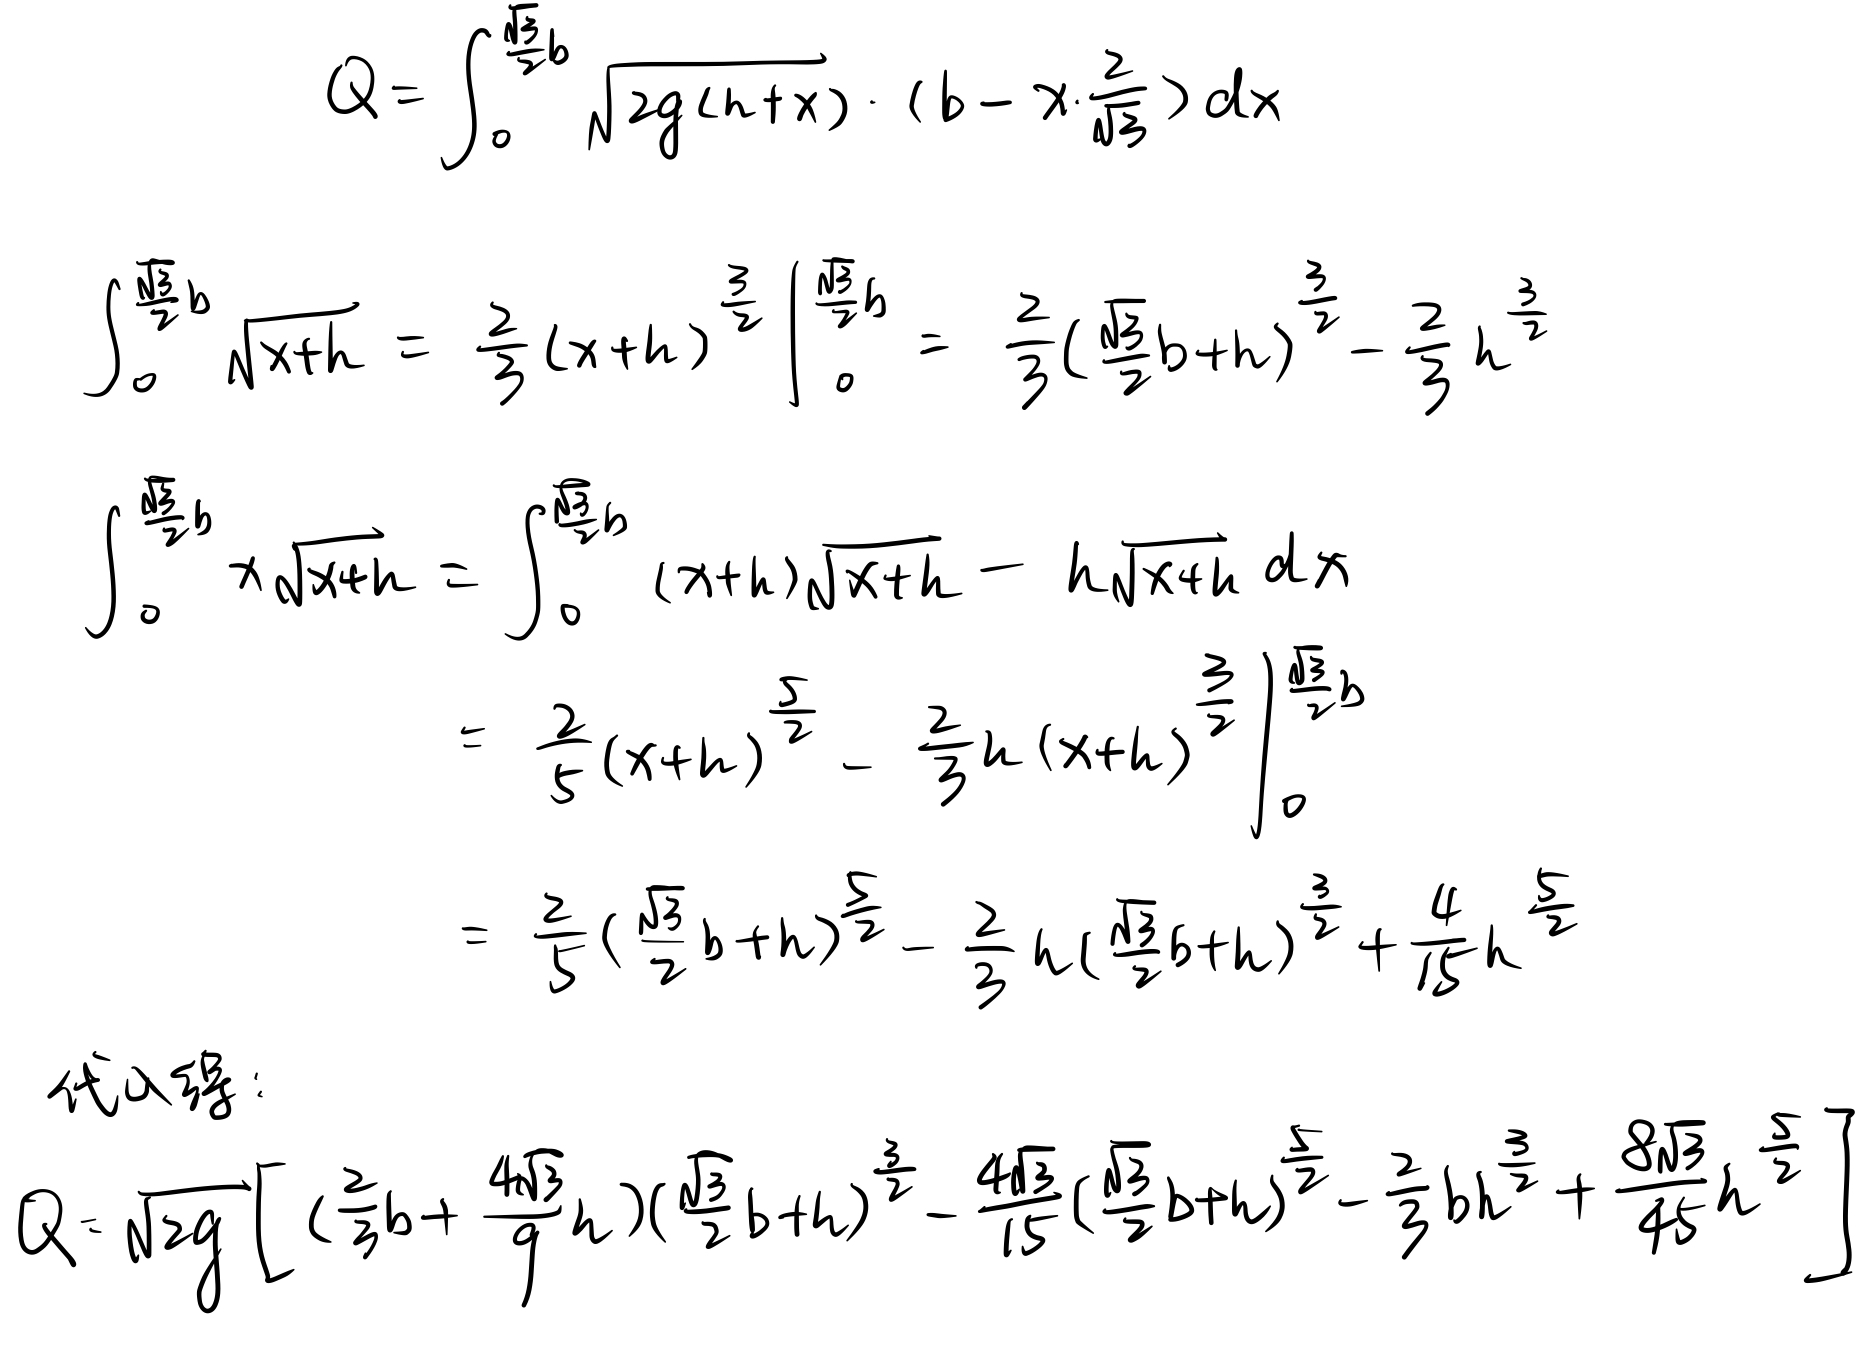 Q = ∫₀^{√3/2 b} √(2g(h+x)) · (b − x·2/√3) dx
∫₀^{√3/2 b} √(x+h) = 2/3 (x+h)^{3/2} |₀^{√3/2 b} = 2/3 (√3/2 b+h)^{3/2} − 2/3 h^{3/2}
∫₀^{√3/2 b} x√(x+h) = ∫₀^{√3/2 b} (x+h)√(x+h) − h√(x+h) dx
= 2/5 (x+h)^{5/2} − 2/3 h (x+h)^{3/2} |₀^{√3/2 b}
= 2/5 (√3/2 b+h)^{5/2} − 2/3 h(√3/2 b+h)^{3/2} + 4/15 h^{5/2}
代入得:
Q = √(2g) [ (2/3 b + 4√3/9 h)(√3/2 b+h)^{3/2} − 4√3/15 (√3/2 b+h)^{5/2} − 2/3 bh^{3/2} + 8√3/45 h^{5/2} ]